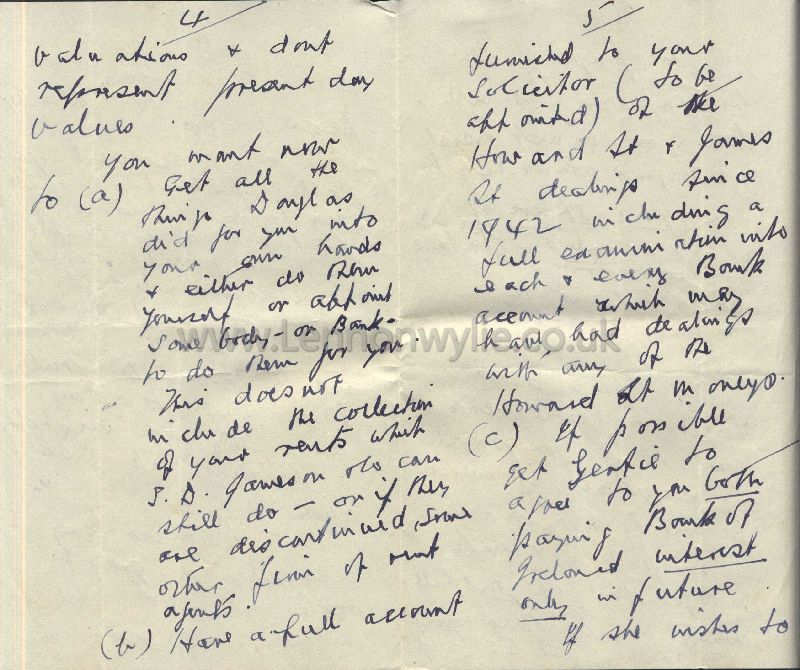 4
valuations & dont
represent present day
values.
You want now
to (a) Get all the
things Douglas
did for you into
your own hands
& either do them
yourself or appoint
some body - or Bank -
to do them for you.
This does not
include the collection
of your rents which
S. D. Jameson & Co can
still do - or if they
are discontinued, some
other firm of rent
agents.
(b) Have a full account
5
furnished to your
Solicitor (to be
appointed) of the
Howard St & James
St dealings since
1942 including a
full examination into
each & every Bank
account which may
have had dealings
with any of the
Howard St moneys.
(c) If possible
get Gertie to
agree to you both
paying Bank of
Ireland interest
only in future
If she wishes to
www.Lennonwylie.co.uk